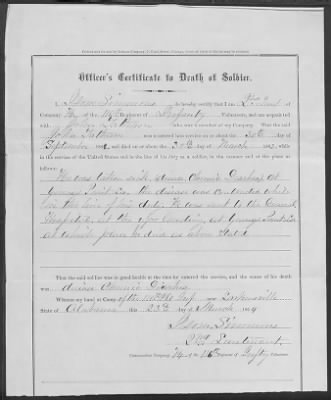 Officer's Certificate to Death of Soldier.
I, Adam Simmons do hereby certify that I am Lieut of
Company "H" of the 116th Regiment of Infantry Volunteers, and am acquainted with
who was a member of my Company. That the said
John was mustered into service on or about the 30th day of
September 186 and died on or about the 30th day of March 186 while in
the service of the United States and in the line of his duty as a soldier, in the manner and at the place as follows:
He was taken with disease Chronic Diarhea at
Youngs Point La. the disease was contracted while
in the line of his duty. He was sent to the General
Hospital at the at Youngs Point La
at which place he died as above stated
That the said soldier was in good health at the time he entered the service, and the cause of his death was
disease Chronic Diarhea
Witness my hand at Camp of the 116 Ills Inf near Larkinsville
State of Alabama this 23d day of March 1864
Adam Simmons
2nd Lieutenant,
Commanding Company "H" of the 116th Regiment of Infty Volunteers.